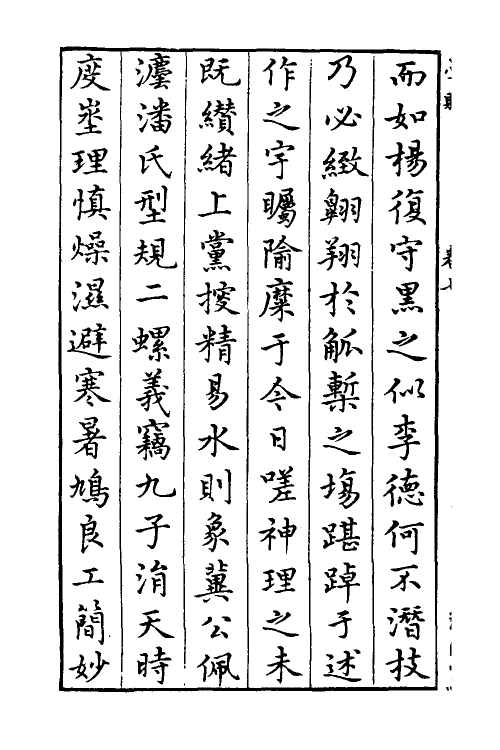 而如楊復守黑之似李德何不潛技
乃必緻翱翔於觚槧之塲踸踔于述
作之宇矚隃糜于今日嗟神理之未
既纘緒上黨摉精易水則象冀公佩
瀍潘氏型規二螺義竊九子涓天時
度埊理慎燥濕避寒暑鳩良工簡妙
卷七